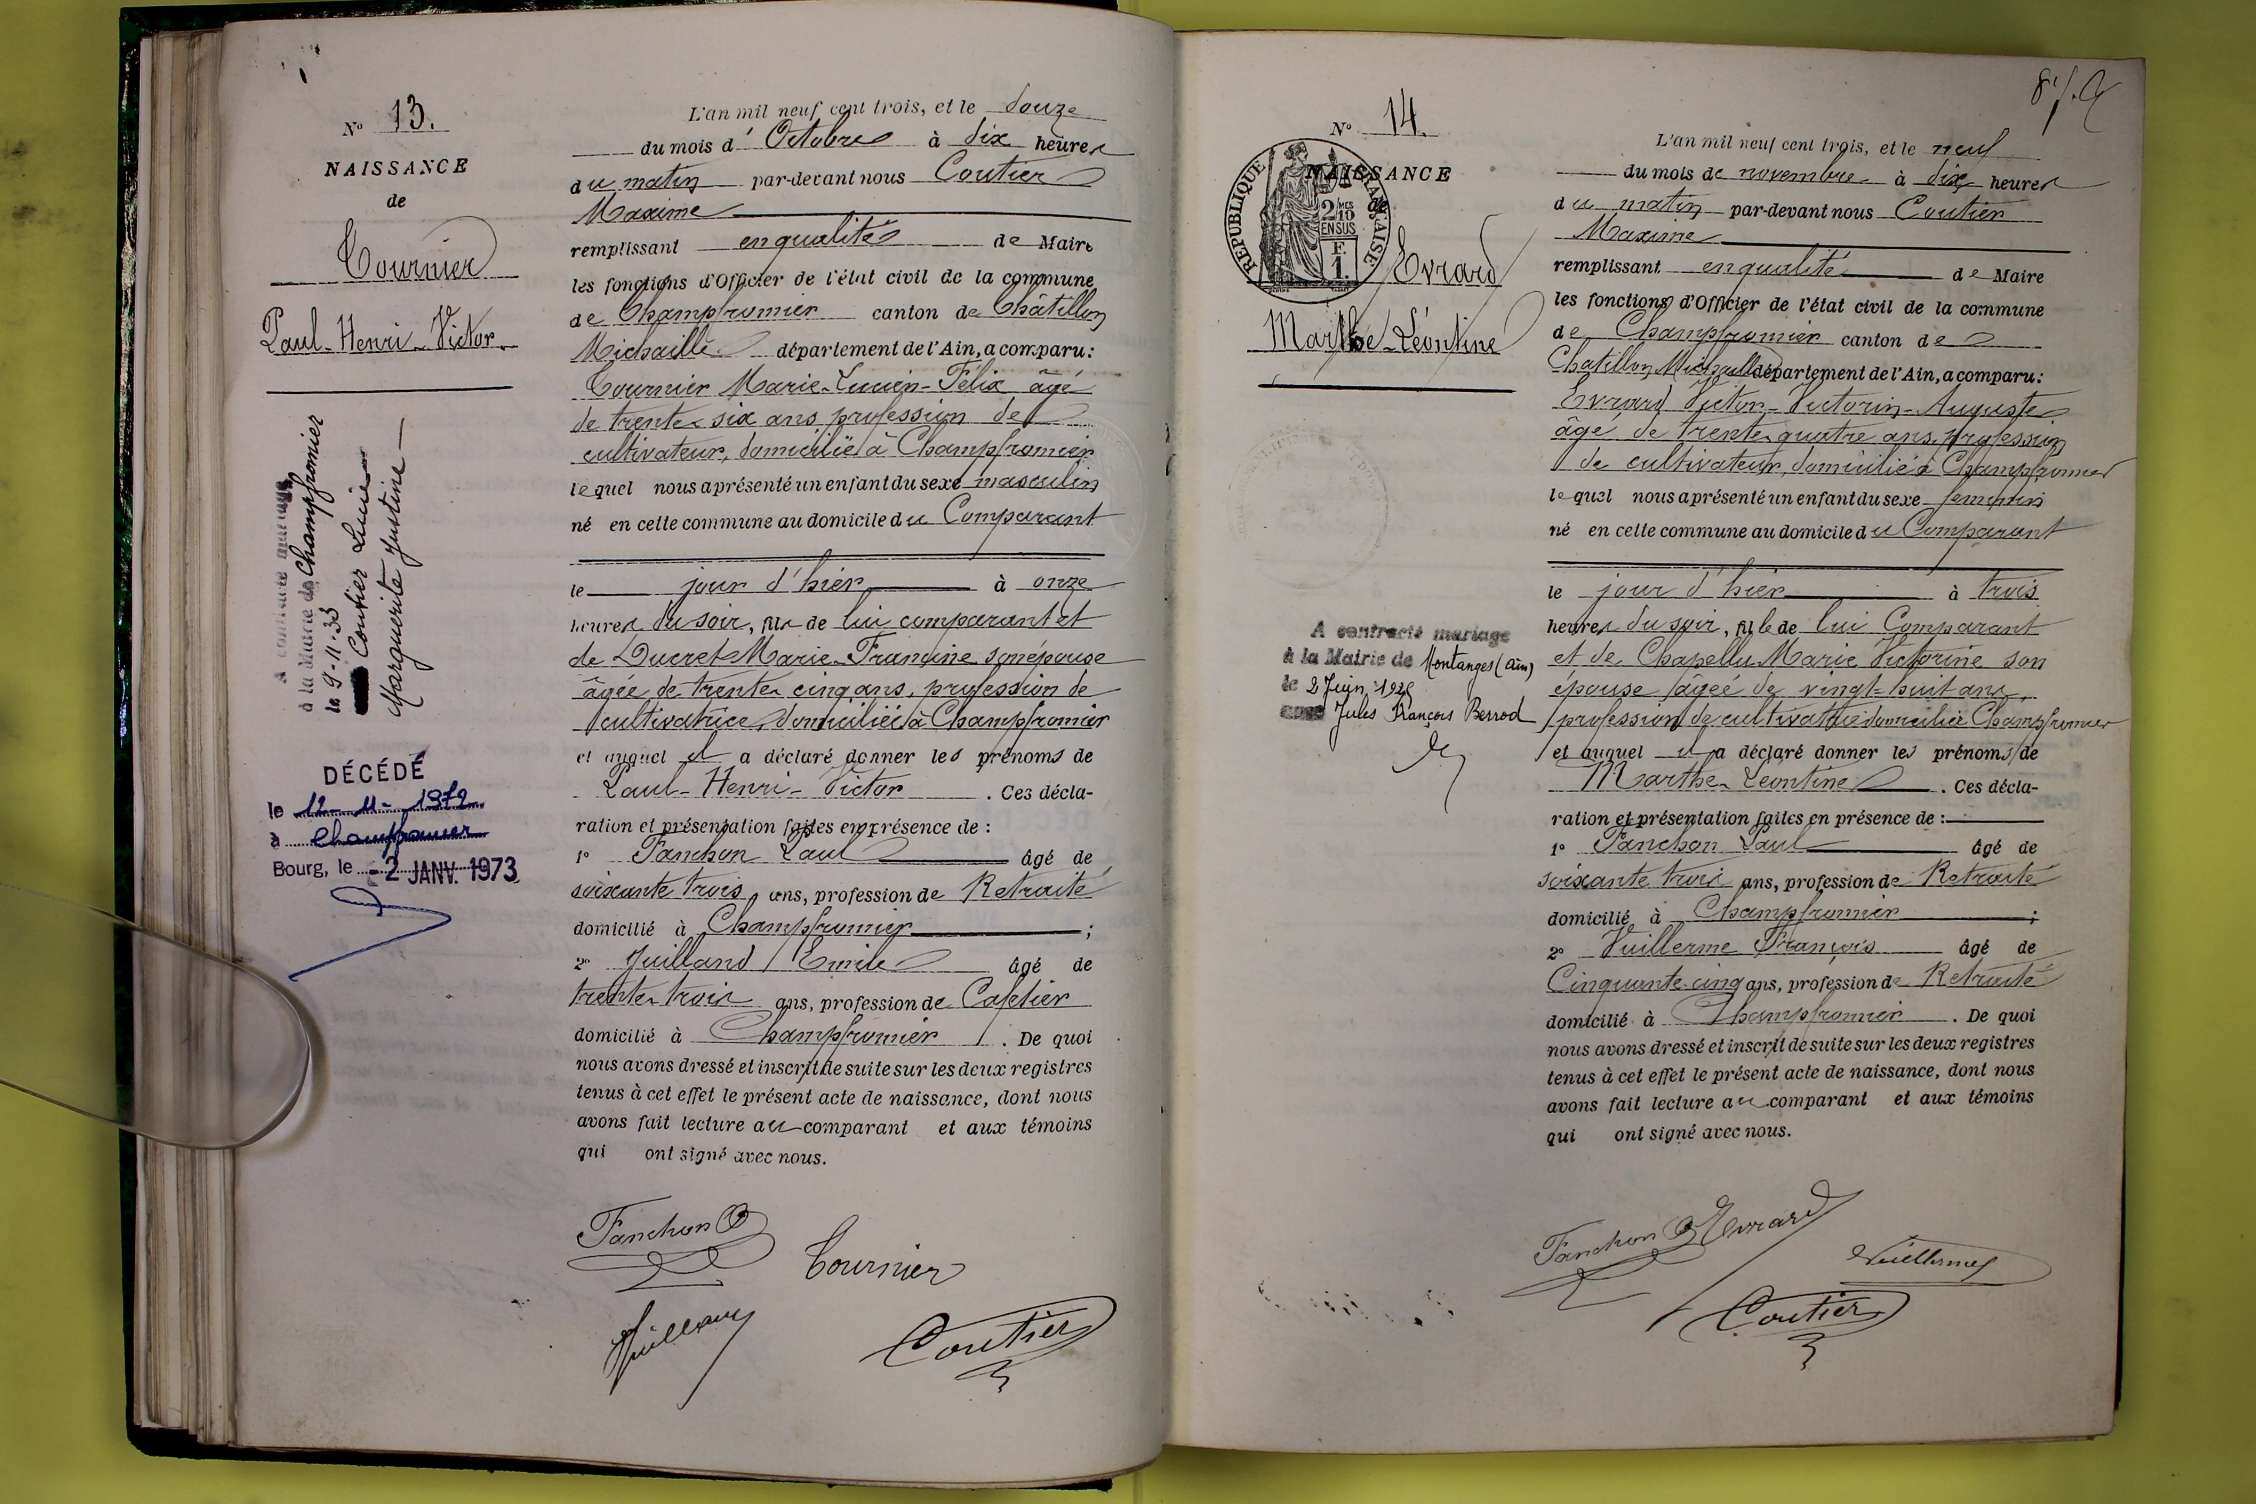 N° 13.
NAISSANCE
de
Tournier
Paul-Henri-Victor.
A contracté mariage
à la Mairie de Champfromier
le 9-11-33
Coutier Lucie
Marguerite Justine
DÉCÉDÉ
le 12-11-1972
à Champfromier
Bourg, le -2 JANV. 1973
L'an mil neuf cent trois, et le douze
du mois d'Octobre à dix heures
du matin par-devant nous Coutier
Maxime
remplissant en qualité de Maire
les fonctions d'Officier de l'état civil de la commune
de Champfromier canton de Châtillon
Michaille. département de l'Ain, a comparu :
Tournier Marie-Lucien-Félix âgé
de trente-six ans profession de
cultivateur, domicilié à Champfromier
lequel nous a présenté un enfant du sexe masculin
né en cette commune au domicile du Comparant
le jour d'hier à onze
heures du soir, fils de lui comparant et
de Ducret Marie-Francine son épouse
âgée de trente cinq ans, profession de
cultivatrice, domiciliée à Champfromier
et auquel il a déclaré donner les prénoms de
Paul-Henri-Victor . Ces décla-
ration et présentation faites en présence de :
1° Fanchon Paul âgé de
soixante trois ans, profession de Retraité
domicilié à Champfromier ;
2° Juilland Emile âgé de
trente-trois ans, profession de Cafetier
domicilié à Champfromier . De quoi
nous avons dressé et inscrit de suite sur les deux registres
tenus à cet effet le présent acte de naissance, dont nous
avons fait lecture au comparant et aux témoins
qui ont signé avec nous.
Fanchon P
Tournier
Juilland
Coutier
N° 14.
NAISSANCE
de
RÉPUBLIQUE FRANÇAISE
2 MES 10
EN SUS
F
1.
Evrard
Marthe-Léontine
A contracté mariage
à la Mairie de Montanges (Ain)
le 2 Juin
avec Jules François Berrod
L'an mil neuf cent trois, et le neuf
du mois de novembre à dix heures
du matin par-devant nous Coutier
Maxime
remplissant en qualité de Maire
les fonctions d'Officier de l'état civil de la commune
de Champfromier canton de
Chatillon Michaille département de l'Ain, a comparu :
Evrard Victor-Victorin-Auguste
âgé de trente-quatre ans, profession
de cultivateur, domicilié à Champfromier
lequel nous a présenté un enfant du sexe feminin
né en cette commune au domicile du Comparant
le jour d'hier à trois
heures du soir, fille de lui Comparant
et de Chapellu Marie Victorine son
épouse âgée de vingt-huit ans,
profession de cultivatrice domiciliée Champfromier
et auquel il a déclaré donner les prénoms de
Marthe-Léontine . Ces décla-
ration et présentation faites en présence de :
1° Fanchon Paul âgé de
soixante trois ans, profession de Retraité
domicilié à Champfromier ;
2° Vuillerme François âgé de
Cinquante-cinq ans, profession de Retraité
domicilié à Champfromier . De quoi
nous avons dressé et inscrit de suite sur les deux registres
tenus à cet effet le présent acte de naissance, dont nous
avons fait lecture au comparant et aux témoins
qui ont signé avec nous.
Fanchon P
Evrard
Vuillerme
Coutier